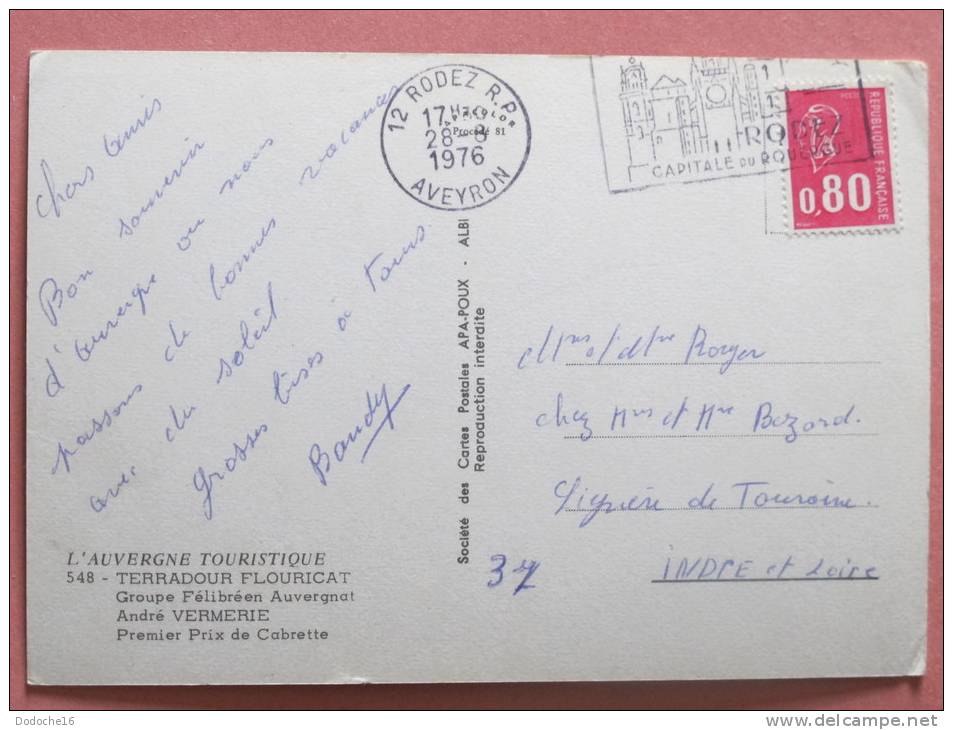 chers amis
Bon souvenir
d'auvergne ou nous
passons de bonnes vacances
avec du soleil
grosses bises à tous.
Baudy
L'AUVERGNE TOURISTIQUE
548 - TERRADOUR FLOURICAT
Groupe Félibréen Auvergnat
André VERMERIE
Premier Prix de Cabrette
Société des Cartes Postales APA-POUX - ALBI
Reproduction interdite
Procédé 81
12 RODEZ R.P.
17 H
28-8
1976
AVEYRON
RODEZ
CAPITALE DU ROUERGUE
REPUBLIQUE FRANÇAISE
0,80
Mrs et Mme Royer
chez Mrs et Mme Bezard.
Lignière de Touraine.
INDRE et Loire
37
Dodoche16
delcampe.net